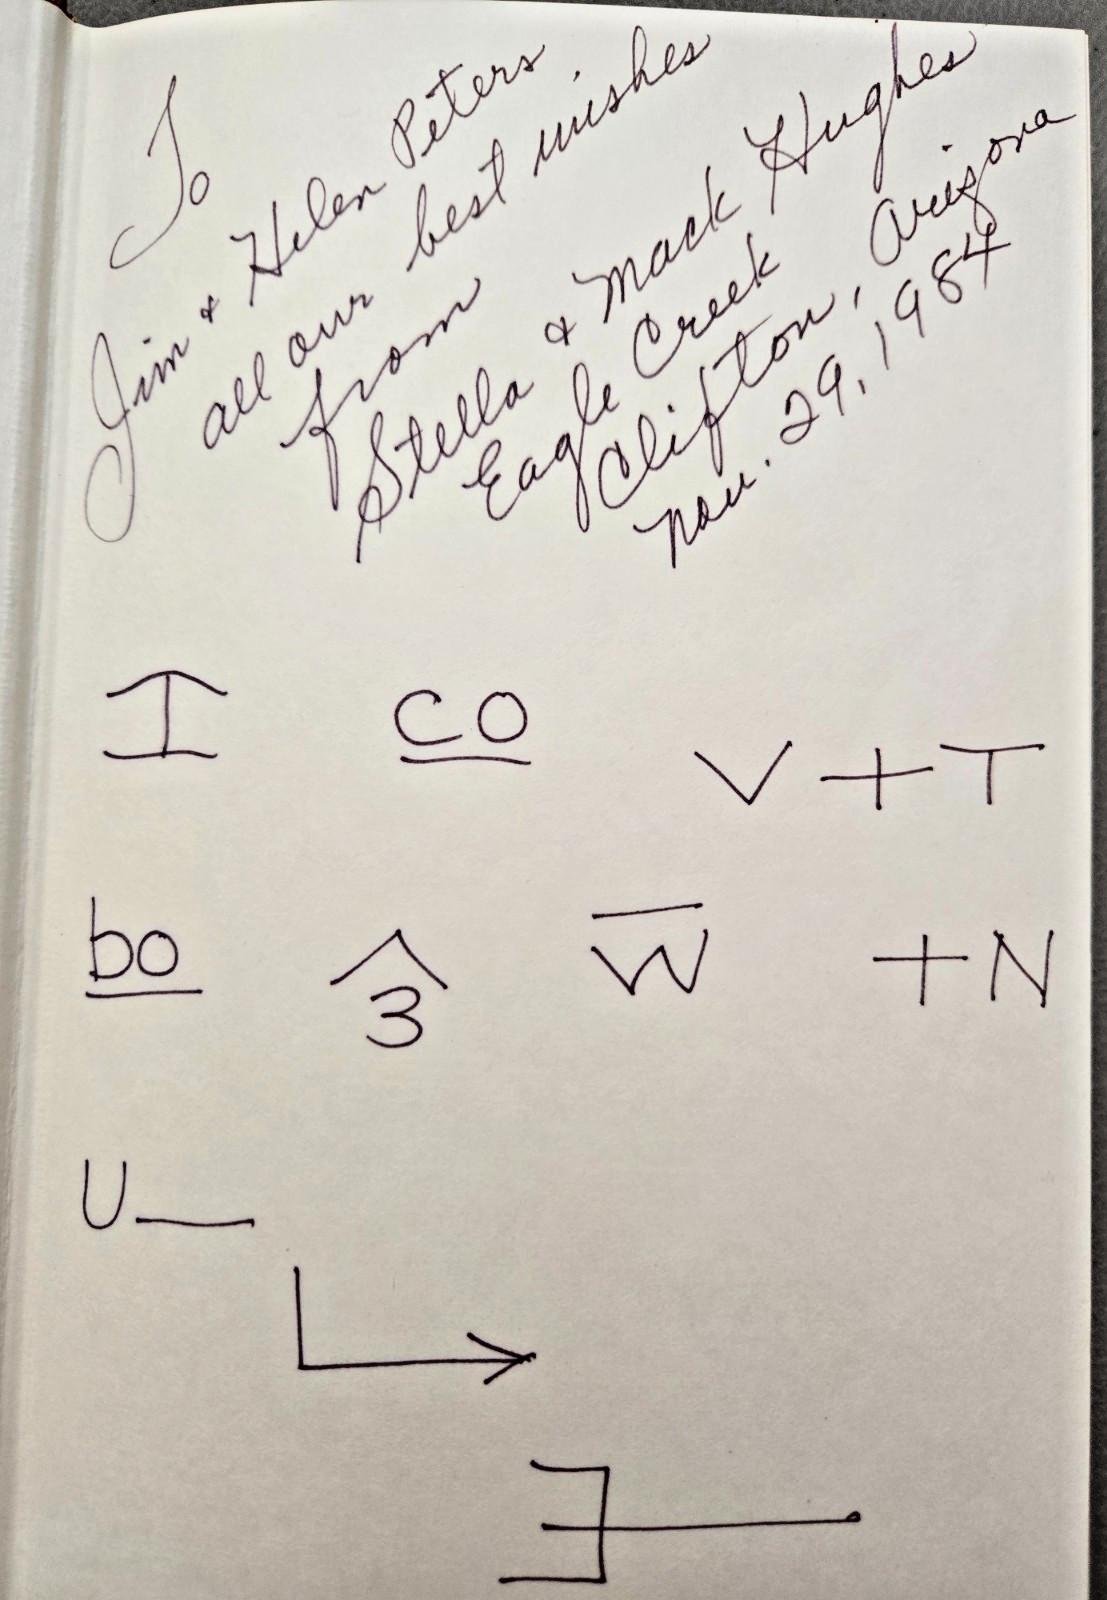 To
Jim & Helen Peters
all our best wishes
from
Stella & Mack Hughes
Eagle Creek
Clifton, Arizona
Nov. 29, 1984
I CO V+T
bo 3 W +N
U—